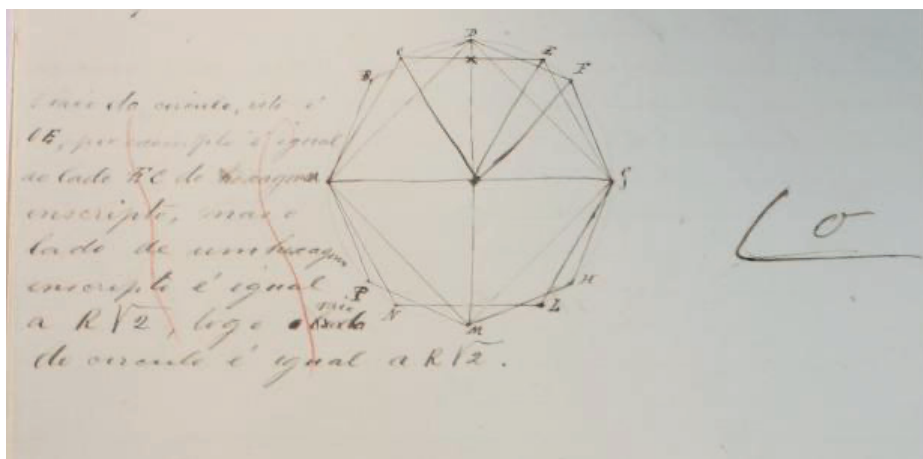 D
C
E
B
F
raio do circulo, isto é
CE, por exemplo é igual
ao lado EC do hexagono
inscripto, mas o
lado de um hexagono
inscripto é igual
a R√2, logo o raio
do circulo é igual a R√2.
G
H
P
N
L
M
o